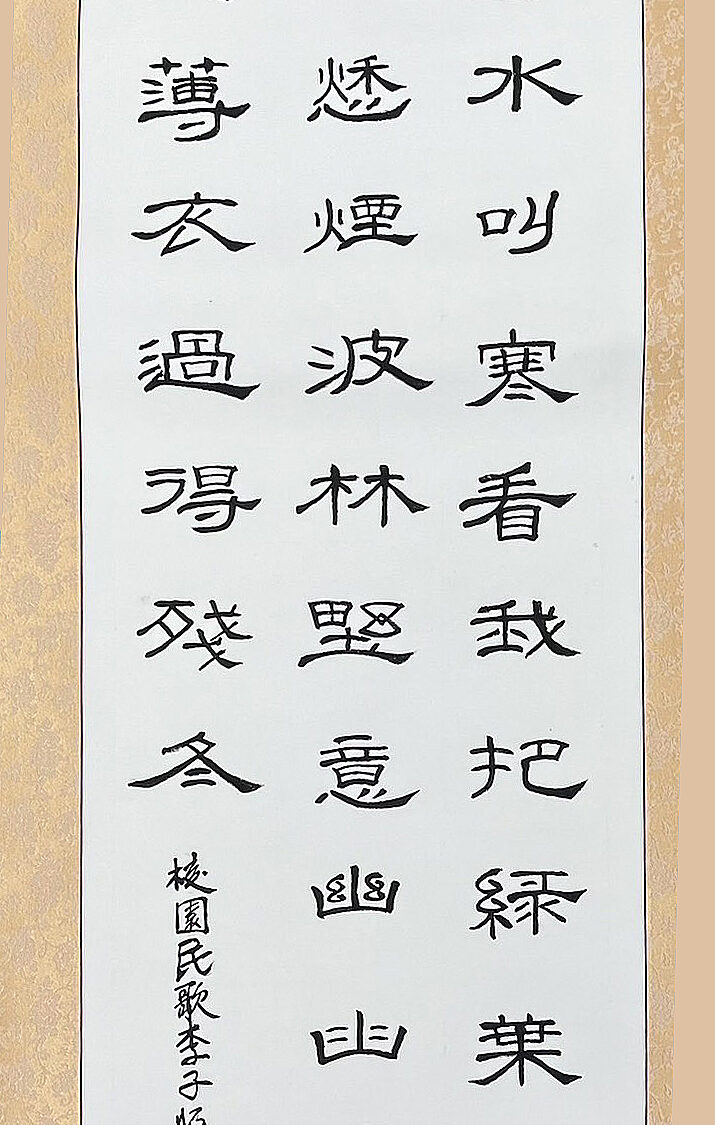 水叫寒看我把綠葉
愁煙波林野意幽幽
薄衣過得殘冬
校園民歌李子